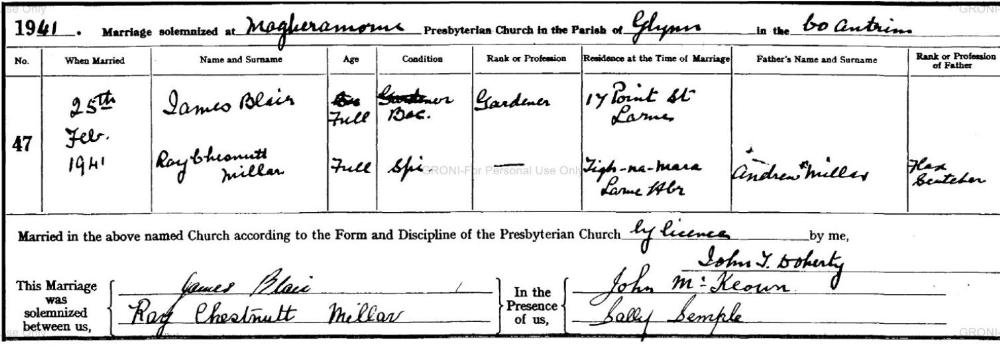 1941. Marriage solemnized at Magheramorne Presbyterian Church in the Parish of Glynn in the Co Antrim
No. When Married Name and Surname Age Condition Rank or Profession Residence at the Time of Marriage Father's Name and Surname Rank or Profession of Father
47
25th Feb. 1941
James Blair Full Gardener Bac. Gardener 17 Point St Larne
Ray Chesnutt Millar Full Spi — Tigh-na-mara Larne Hbr Andrew Millar Flax Scutcher
Married in the above named Church according to the Form and Discipline of the Presbyterian Church by licence by me,
John T. Doherty
This Marriage was solemnized between us,
James Blair
Ray Chestnutt Millar
In the Presence of us,
John McKeown
Sally Semple
GRONI-For Personal Use Only